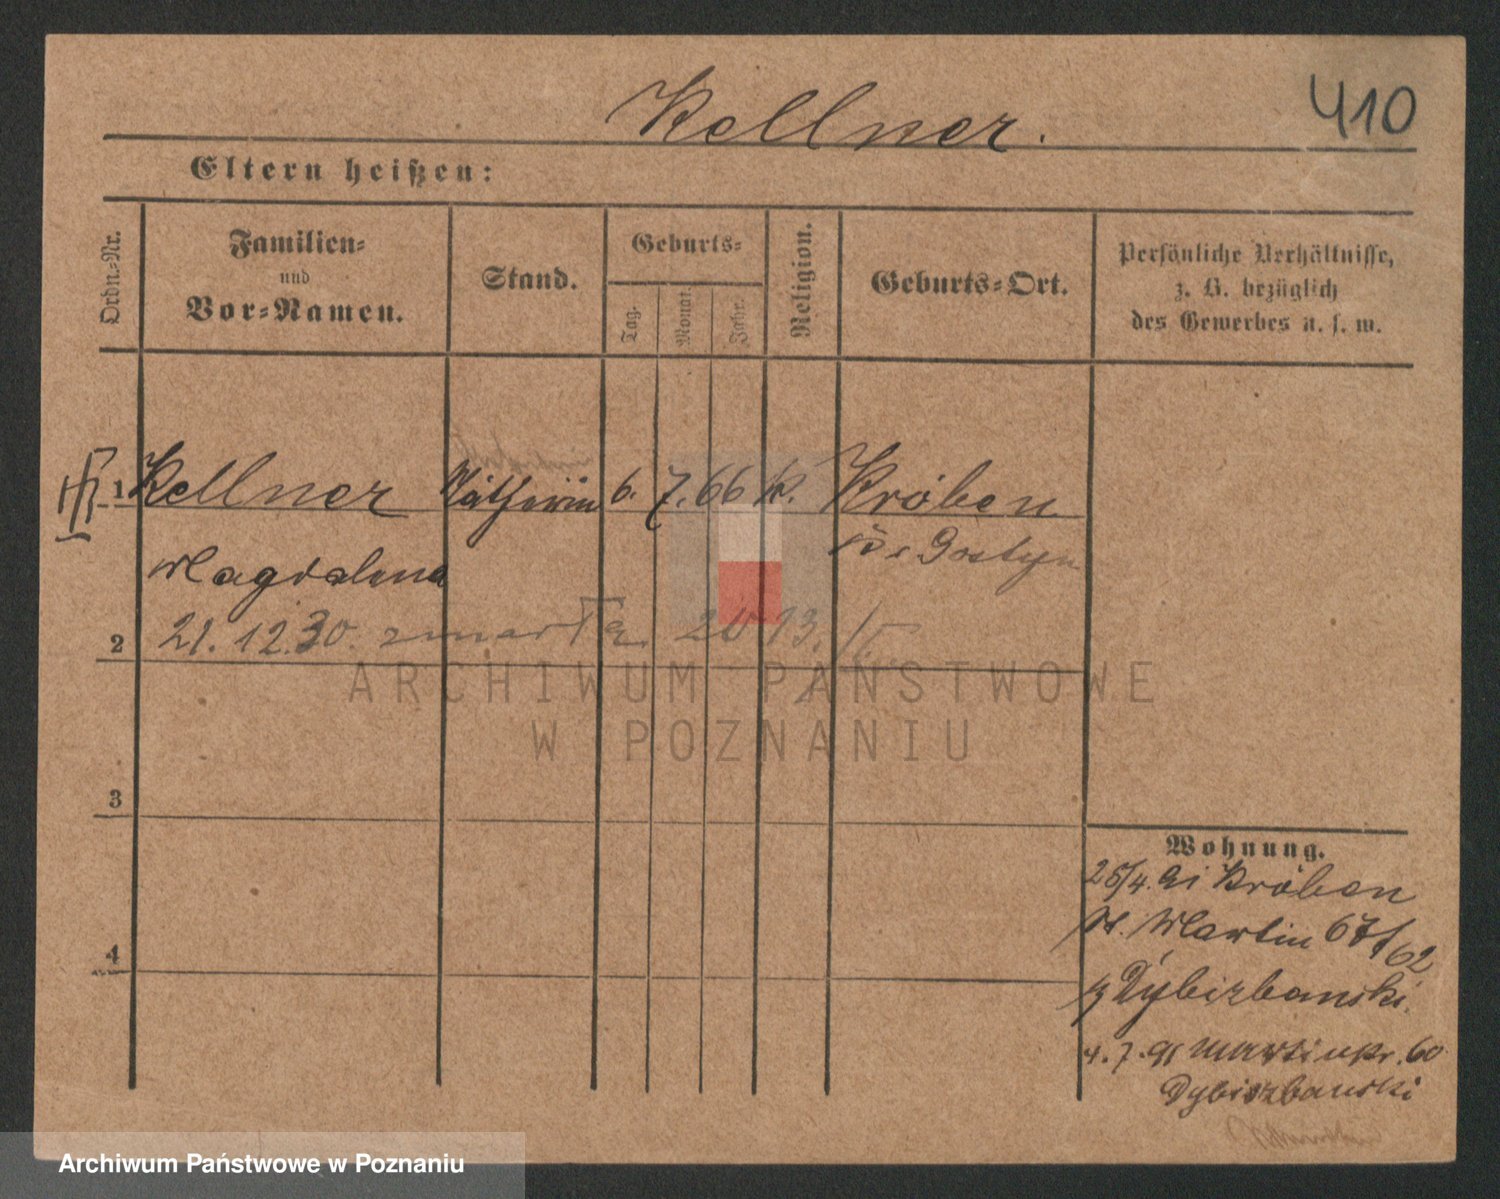 Kellner.
410
Eltern heißen:
Ordn.=Nr.
Familien=
und
Vor=Namen.
Stand.
Geburts=
Tag.
Monat.
Jahr.
Religion.
Geburts=Ort.
Persönliche Verhältnisse,
z. B. bezüglich
des Gewerbes u. s. w.
1 Kellner 6. 7. 66 k. Kröben
Gostyn
Magdalena
2 21. 12. 30. zmarła
3
4
ARCHIWUM PAŃSTWOWE
W POZNANIU
Wohnung.
25/4. 91 Kröben
St. Martin 67/62
Dybizbanski.
4. 7. 91 Martinstr. 60
Dybizbanski
Archiwum Państwowe w Poznaniu